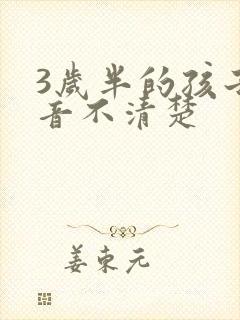 3歲半的孩子
音不清楚
姜東元